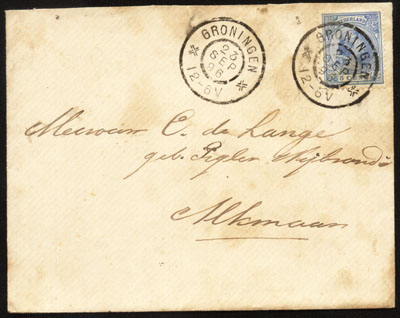 GRONINGEN
3 SEP 96
12-6V
NEDERLAND
GRONINGEN
3 SEP
12-6V
Mevrouw C. de Lange
geb. Pigler Wijbrands
Alkmaar